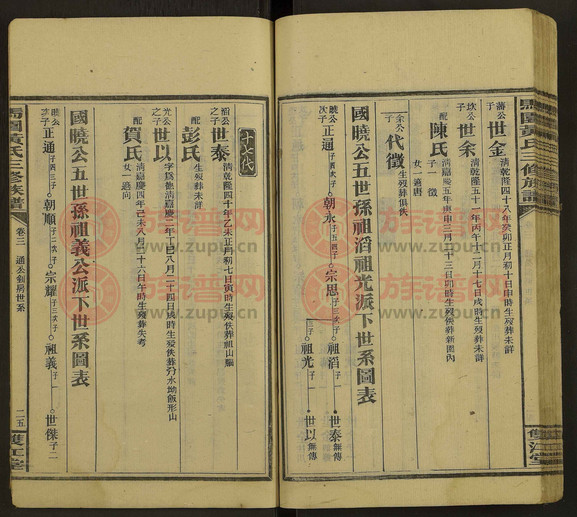 馬園黃氏三修族譜
雙江堂
濤公之子 世金 清乾隆四十八年癸卯正月初十日申時生歿葬未詳
坎公次子 世余 清乾隆五十一年丙午十二月十七日戌時生歿葬未詳
配 陳氏 清嘉慶五年庚申三月二十三日卯時生歿俱佚葬新圍內
子一 徵
女一適唐
余公子 代徵 生歿葬俱佚
國曉公五世孫祖滔祖光派下世系圖表
曉公次子 正通 朝永 宗思 祖滔 子一 世泰 無傳
祖光 子一 世以 無傳
十七代
滔公之子 世泰 清乾隆四十年乙未正月初七日寅時生歿佚葬祖山腦
配 彭氏 生歿葬未詳
光公之子 世以 字為德清嘉慶二年丁巳八月二十四日戌時生歿佚葬分水坳飯形山
配 賀氏 清嘉慶四年己未八月二十六日午時生歿葬失考
女一適向
國曉公五世孫祖義公派下世系圖表
曉公次子 正通 朝順 宗耀 祖義 子一 世傑 子二
馬園黃氏三修族譜
卷三
通公釗房世系
二五
雙江堂
族譜网
www.zupu.cn